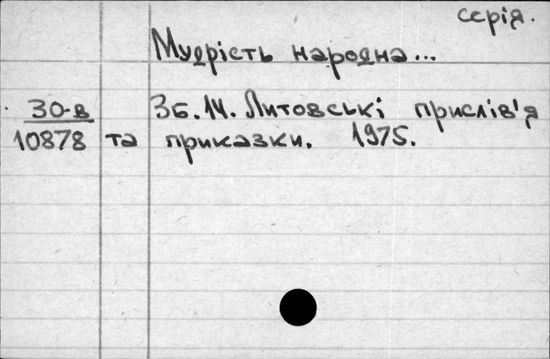 серія.
Мудрість народна...
30-в Зб. 14. Литовські прислів'я
10878 та приказки. 1975.